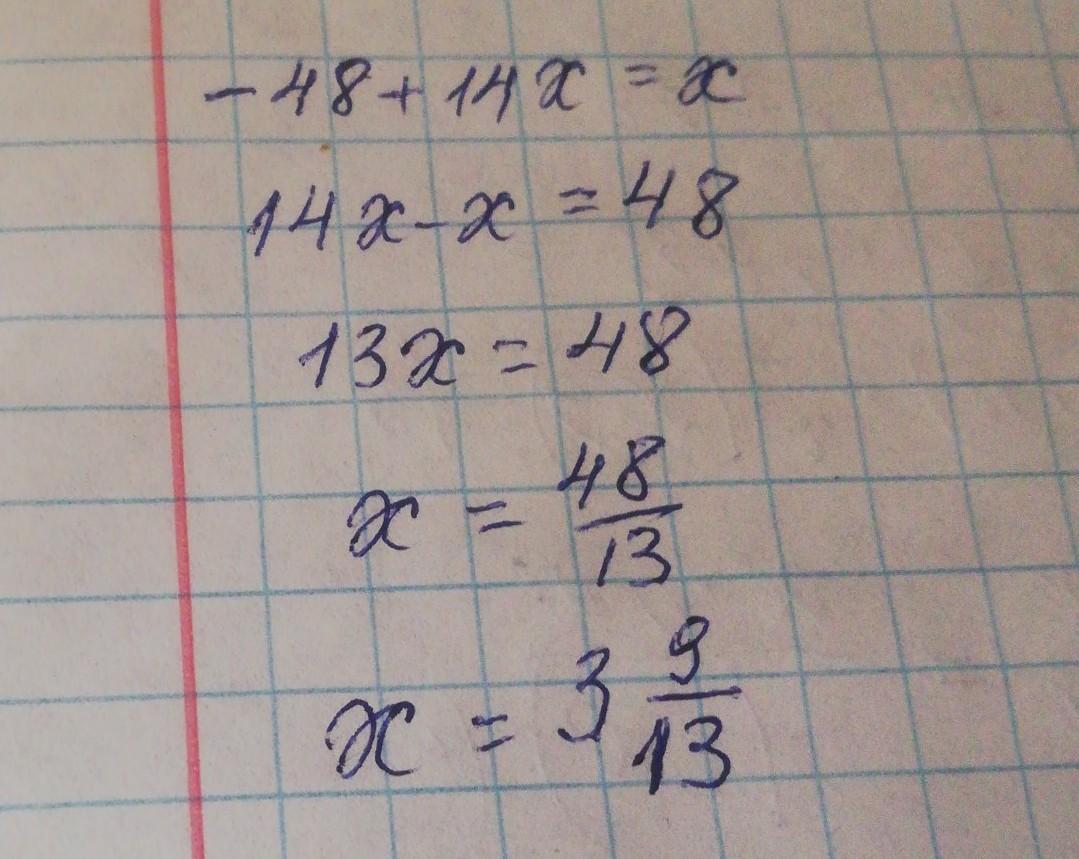 -48+14x=x
14x-x=48
13x=48
x=48/13
x=3 9/13